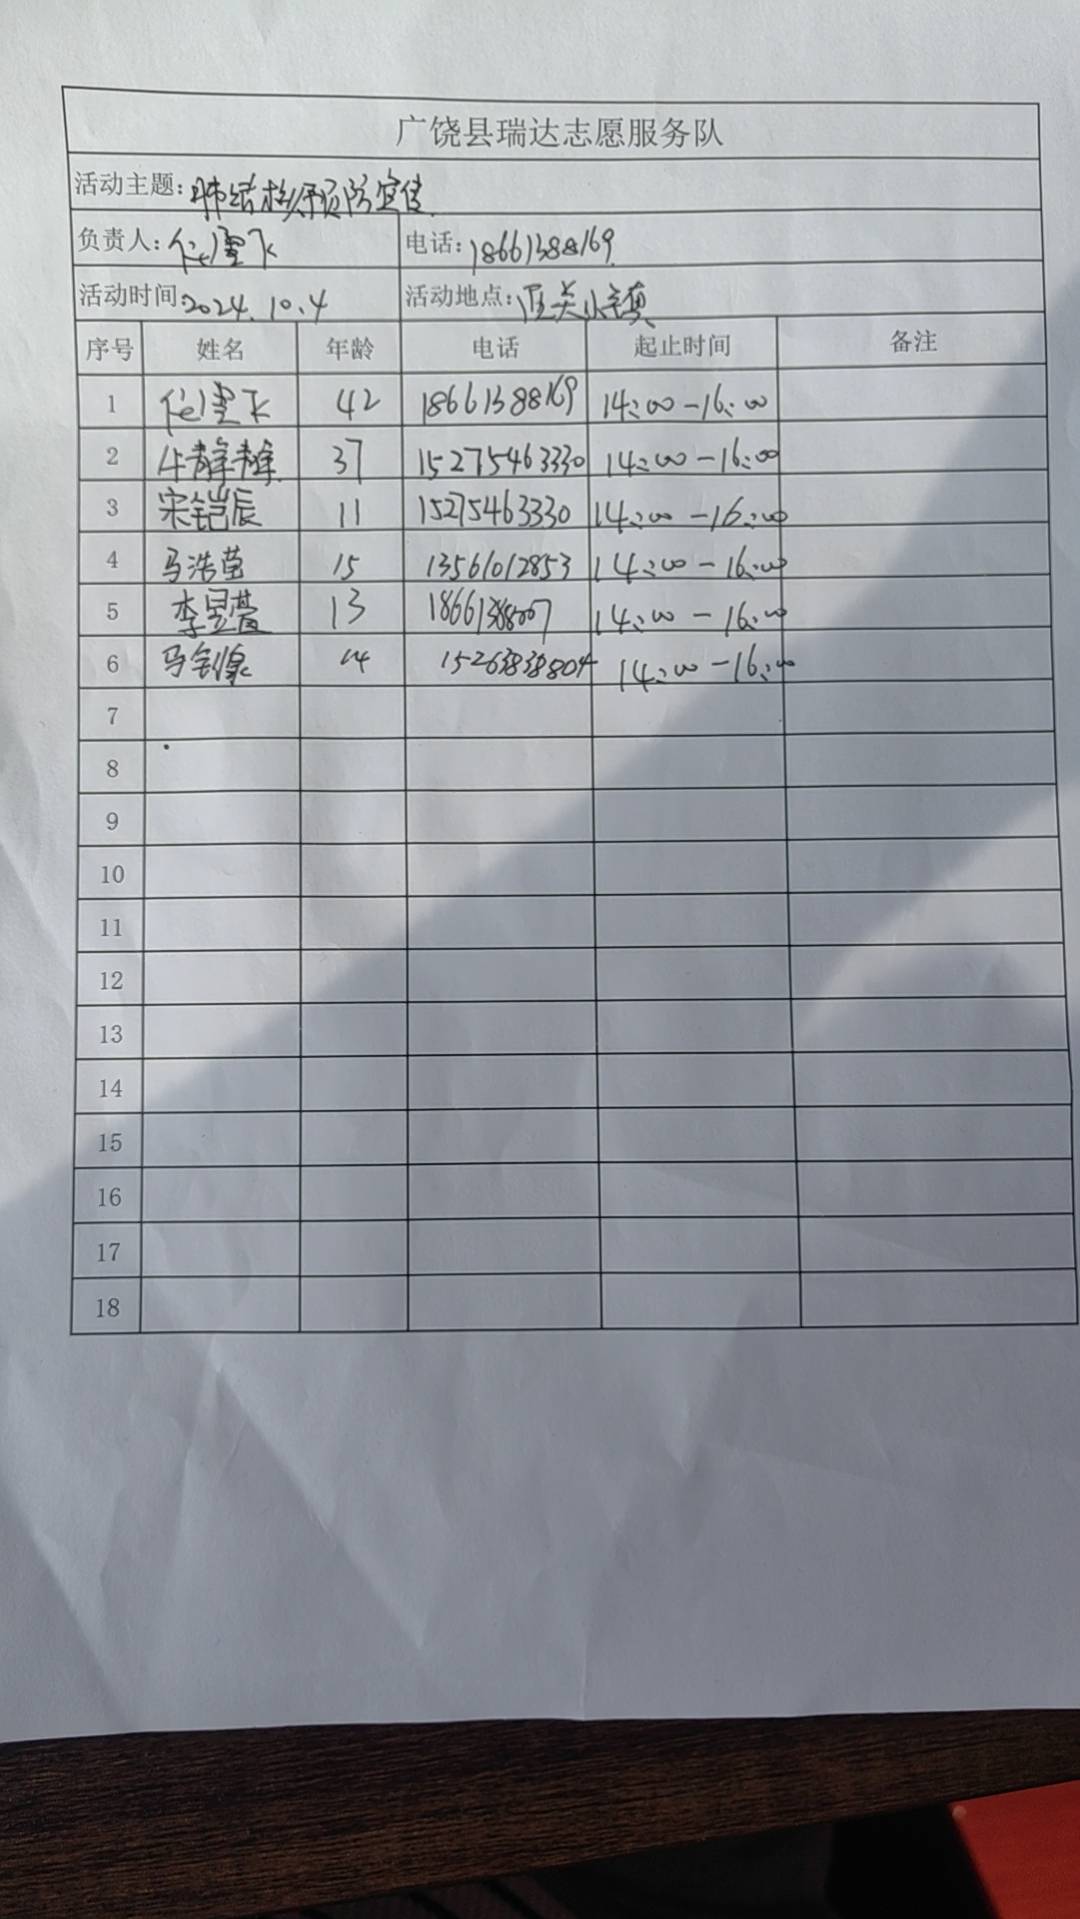 广饶县瑞达志愿服务队
活动主题: 肺结核病预防宣传
负责人: 电话: 18661388169
活动时间: 2024.10.4 活动地点: 西关小镇
序号 姓名 年龄 电话 起止时间 备注
1 42 18661388169 14:00-16:00
2 37 15275463330 14:00-16:00
3 宋铠辰 11 15275463330 14:00-16:00
4 马浩茁 15 13561012853 14:00-16:00
5 李昱萱 13 14:00-16:00
6 14 15263838804 14:00-16:00
7
8
9
10
11
12
13
14
15
16
17
18